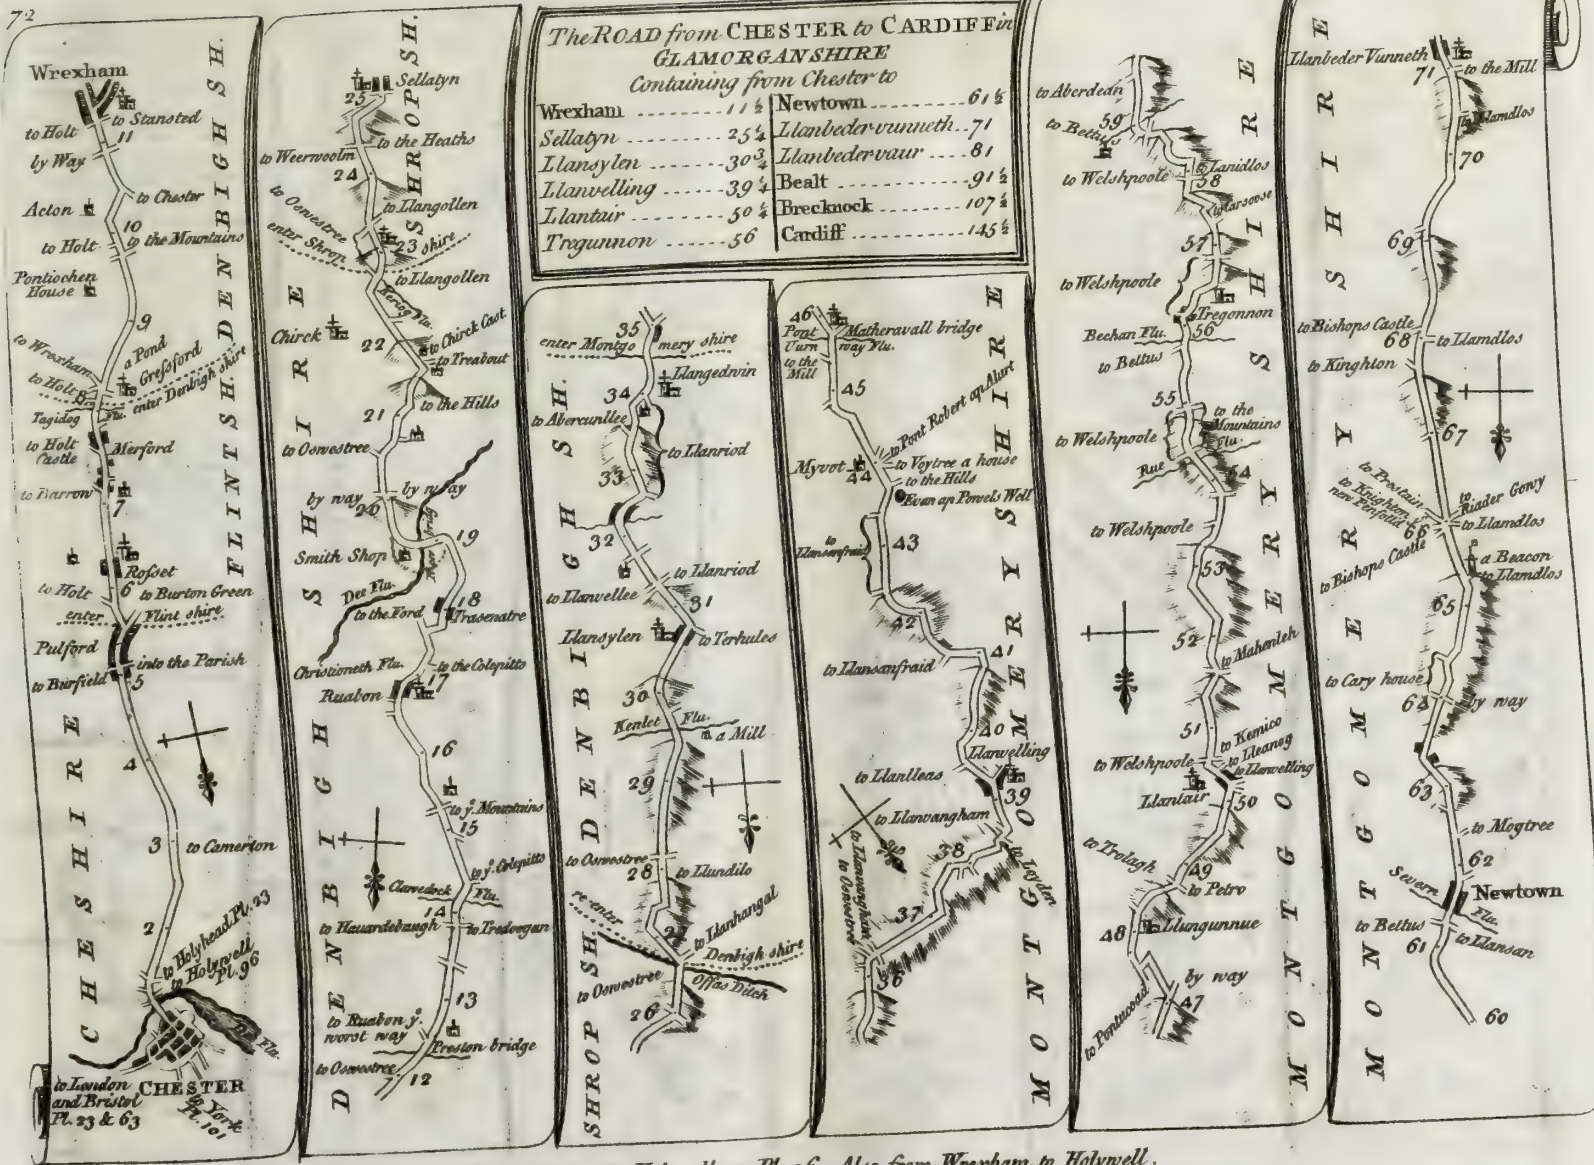 72
The ROAD from CHESTER to CARDIFF in
GLAMORGANSHIRE
Containing from Chester to
Wrexham 11½
Sellatyn 25¼
Llansylen 30¾
Llanvelling 39¼
Llantair 50¼
Tregunnon 56
Newtown 61½
Llanbeder-vunneth 71
Llanbedervaur 81
Bealt 91½
Brecknock 107½
Cardiff 145½
Wrexham
to Stansted
to Holt
11
by Way
to Chester
Acton
10
to the Mountains
to Holt
Pontiochen
House
9
to Wrexham
a Pond
Gresford
to Holt
8
enter Denbigh shire
Tagidog
Flu.
to Holt
Castle
Merford
to Barrow
7
Rosset
6
to Holt
to Burton Green
enter
Flint shire
Pulford
into the Parish
to Burfield
5
4
3
to Camerton
2
to Holyhead Pl. 23
to Holywell
Pl. 96
Dee Flu.
CHESTER
to London
and Bristol
Pl. 23 & 63
to York
Pl. 101
CHESHIRE
FLINTSH.
DENBIGH SH.
Sellatyn
25
to the Heaths
to Weerwoolm
24
to Llangollen
to Oswestree
enter Shrop
23
shire
to Llangollen
Keriog Flu.
Chirck
22
to Chirck Cast
to Treabout
to the Hills
21
to Oswestree
by way
by way
20
19
Smith Shop
Dee Flu.
18
to the Ford
Trasenatre
Christioneth Flu.
to the Colepitts
17
Ruabon
16
to ye. Mountains
15
to ye. Colepitts
Clawedock
Flu.
14
to Hauardebaugh
to Tredoegan
13
to Ruabon ye.
worst way
Preston bridge
to Oswestree
12
DENBIGH SHIRE
SHROPSH.
35
enter Montgo
mery shire
Llangedwin
34
to Abercunllee
to Llanriod
33
32
to Llanriod
to Llanvellee
31
Llansylen
to Terhules
30
Kenlet
Flu.
a Mill
29
to Oswestree
28
to Llundilo
re enter
27
to Llanhangal
Denbigh shire
to Oswestree
Offas Ditch
26
SHROPSH.
DENBIGH SH.
46
Pont
Uurn
Matheravall bridge
way Flu.
to the
Mill
45
to Pont Robert ap Alurt
Myvot
to Voytree a house
44
to the Hills
Evan ap Powels Well
43
to
Llansanfraid
42
41
to Llansanfraid
40
Llanvelling
to Llanlleas
39
to Llanvangham
38
to Leyder
to Llanvangham
to Oswestree
37
36
MONTGOMERYSHIRE
to Aberdean
59
to Bettus
Lanidlos
to Welshpoole
58
to Carsoose
57
to Welshpoole
Tregonnon
56
Bechan Flu.
to Bettus
55
to the
Mountains
to Welshpoole
Flu.
Rue
54
to Welshpoole
53
52
to Mahenleh
51
to Kemico
to Lleanog
to Welshpoole
to Llanvelling
Llantair
50
to Trolagh
49
to Petro
Llungunnue
48
by way
47
to Pontuoad
MONTGOMERYSHIRE
Llanbeder Vunneth
71
to the Mill
to Llamdlos
70
69
to Bishops Castle
68
to Llamdlos
to Kinghton
67
to Prestain
to Knighton &
new Penfolld
to
Riader Gowy
66
to Llamdlos
to Bishops Castle
a Beacon
to Llamdlos
65
to Cary house
64
by way
63
to Mogtree
62
Severn
Newtown
Flu.
to Bettus
to Llansan
61
60
MONTGOMERYSHIRE
Also from Wrexham to Holywell.